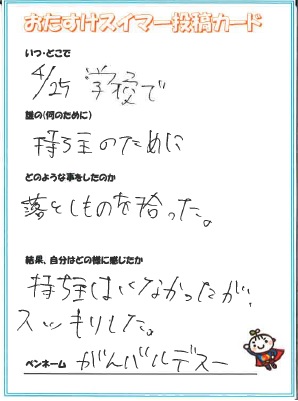 おたすけスイマー投稿カード
いつ・どこで
4/25 学校で
誰の(何のために)
持ち主のために
どのような事をしたのか
落としものを拾った。
結果、自分はどの様に感じたか
持ち主はいなかったが、
スッキリした。
ペンネーム がんバルデスー